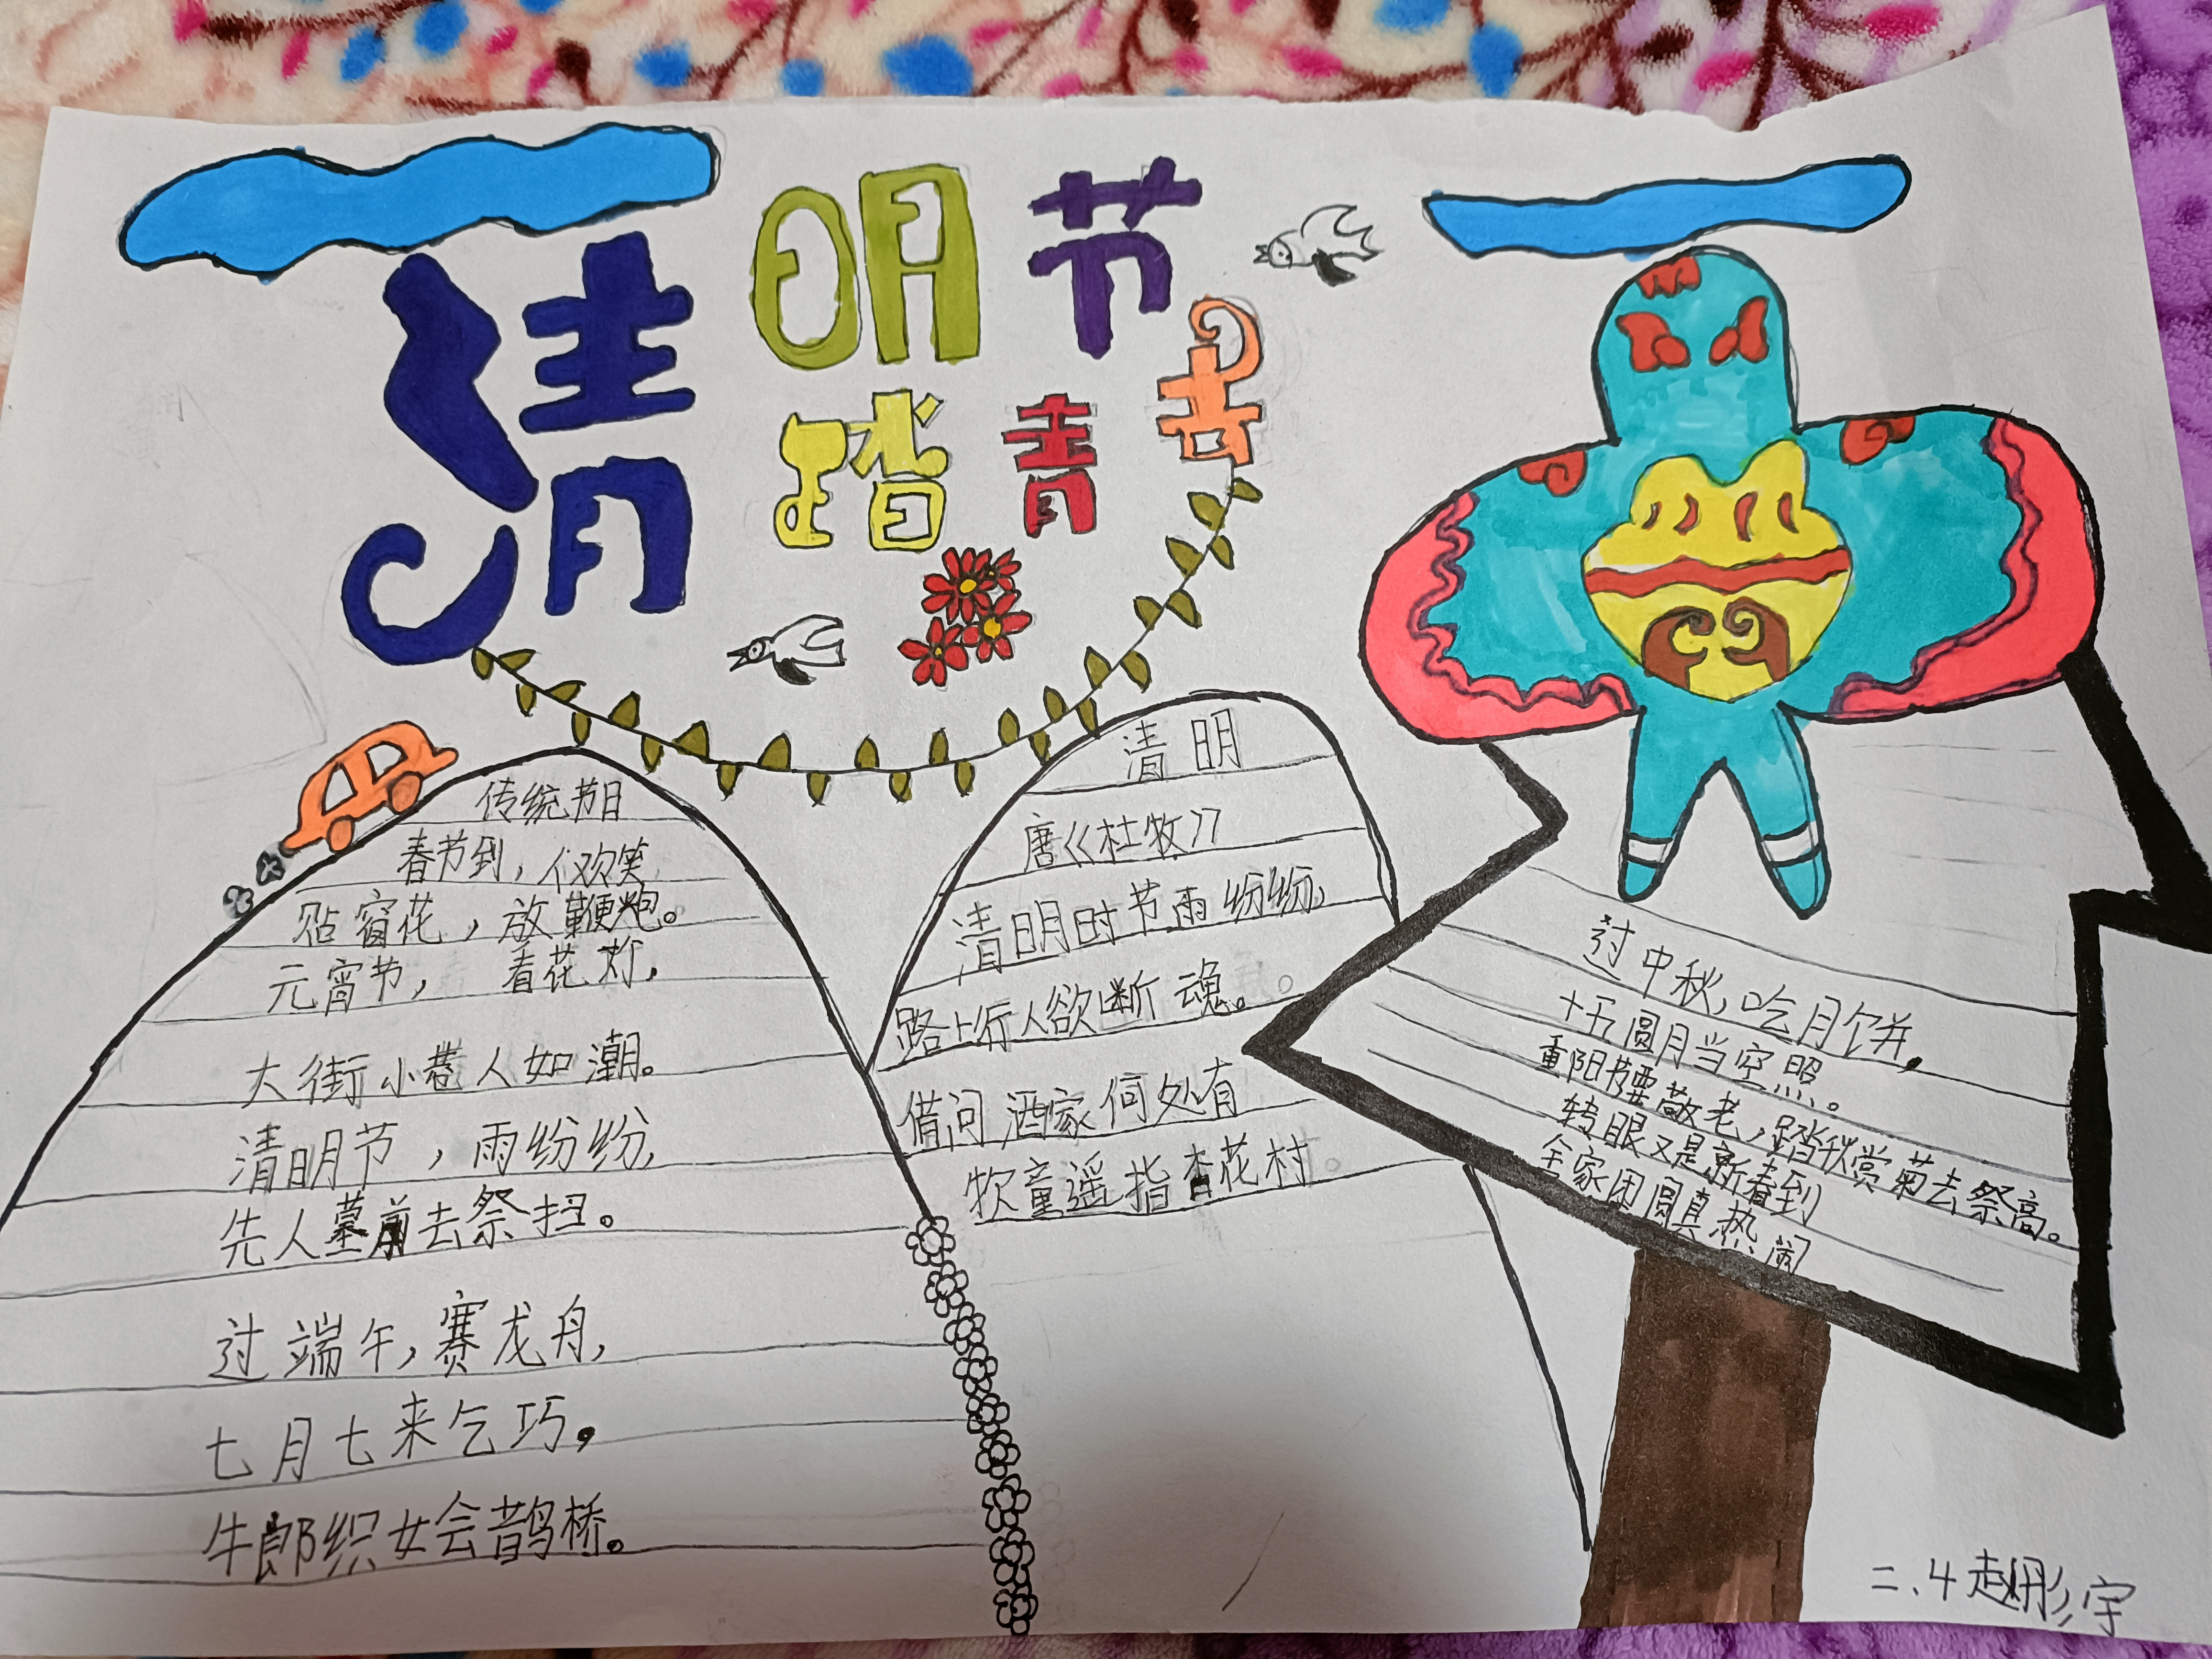 清明节
踏青去
传统节日
春节到，人欢笑，
贴窗花，放鞭炮。
元宵节，看花灯，
大街小巷人如潮。
清明节，雨纷纷，
先人墓前去祭扫。
过端午，赛龙舟，
七月七来乞巧。
牛郎织女会鹊桥。
清明
唐《杜牧》
清明时节雨纷纷，
路上行人欲断魂。
借问酒家何处有
牧童遥指杏花村。
过中秋，吃月饼，
十五圆月当空照。
重阳节要敬老，踏秋赏菊去祭高。
转眼又是新春到
全家团圆真热闹
二.4赵彤宇